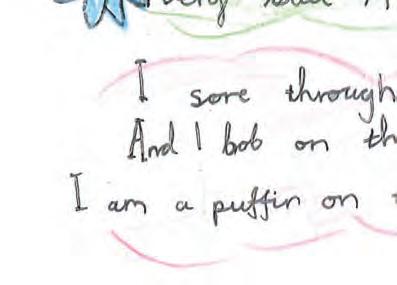 I sore through
And I bob on th
I am a puffin on